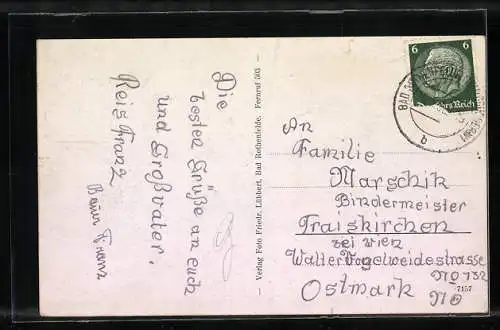 Die
besten Grüße an euch
und Großvater.
Reis Franz
Verlag Foto Friedr. Lübbert, Bad Rothenfelde. Fernruf 303
6 6
Deutsches Reich
BAD
b
An
Familie
Marschik
Bindermeister
Traiskirchen
bei Wien
Walter Vogelweidestrasse
No 732
Ostmark
ND
7157